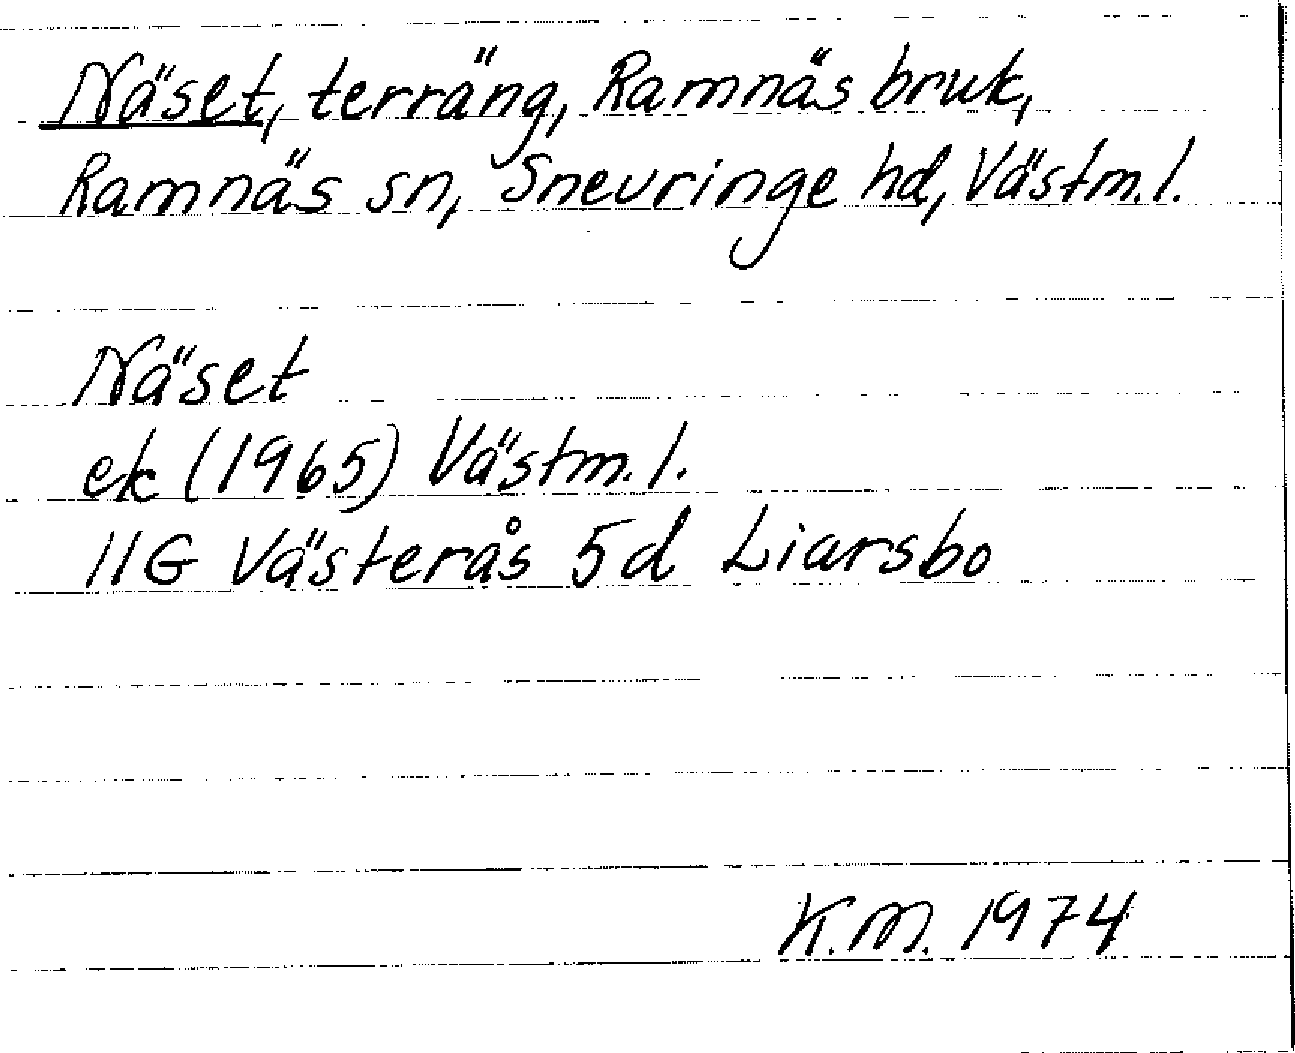 Näset, terräng, Ramnäs bruk,
Ramnäs sn, Snevringe hd, Västm. l.
Näset
ek (1965) Västm. l.
11G Västerås 5d Liarsbo
K.M. 1974